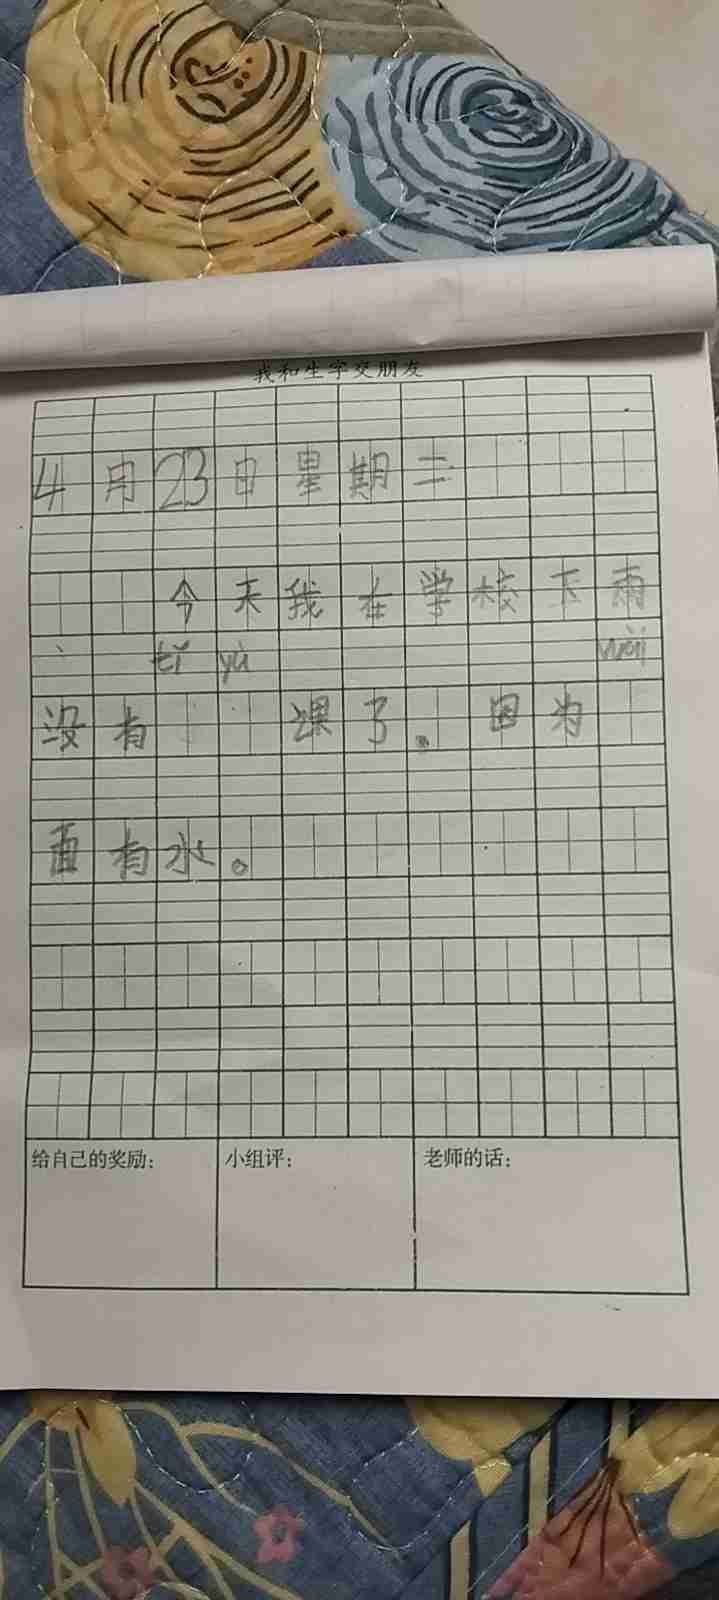 我和生字交朋友
4月23日星期二
今天我在学校下雨
tǐ yù wài
没有 课了。因为
面有水。
给自己的奖励: 小组评: 老师的话: